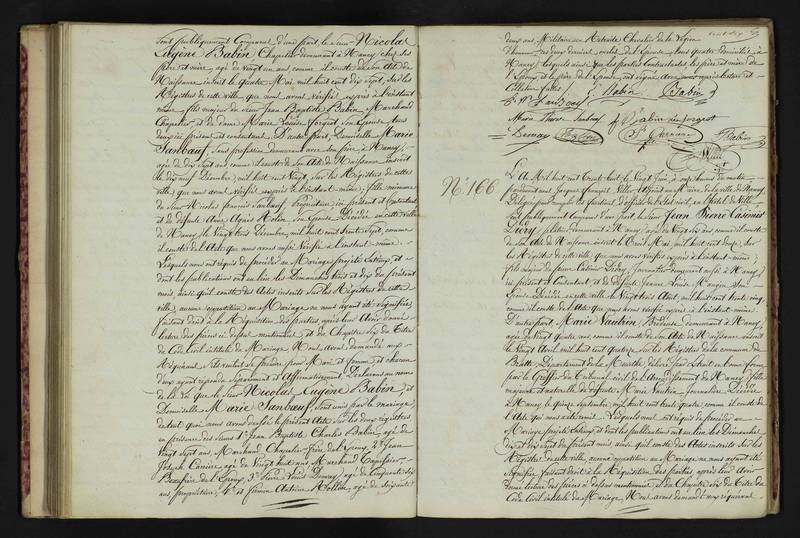 Sont publiquement Comparus d'une part, le sieur Nicolas
Eugène Babin Chapelier demeurant à Nancy chez ses
père et mère, agé de vingt un ans comme il conste de son Acte de
Naissance inscrit le quatre Mai mil huit cent dix Sept, sur les
Registres de cette ville que nous avons vérifié exprès à l'instant
même, fils majeur de sieur Jean Baptiste Babin Marchand
Chapelier et de dame Marie Louise Forgeot Son Epouse tous
deux ici présent et contentant. D'autre part, Demoiselle Marie
Sanbœuf, Sans profession demeurant avec son père, à Nancy,
agée de dix Sept ans comme il conste de son Acte de Naissance inscrit
le dix neuf Décembre, mil huit cent vingt, sur les Registres de cette
ville, que nous avons vérifié exprès à l'instant même, fille mineure
de Sieur Nicolas François Sanbœuf, Propriétaire, ici présent et Contentant
et de défunte Anne Agnès Son Epouse Décédée en cette ville
de Nancy, le vingt trois Décembre, mil huit cent trente Sept, comme
il conste de l'Acte que nous avons aussi Vérifié à l'instant même.
Lesquels nous ont requis de procéder au Mariage projeté Entreux, et
dont les publications ont eu lieu les Dimanches trois et dix du présent
mois ainsi qu'il conste des Actes inscrits sur les Registres de cette
ville, aucune opposition au Mariage ne nous ayant été Signifiée,
faisant droit à la Réquisition des parties, après leur Avoir donné
lecture des pièces ci dessus mentionnées et du Chapitre six du Titre
du Code Civil intitulé du Mariage, Nous Avons demandé aux
Réquérans s'ils veulent se prendre pour Mari et femme, et chacun
d'eux ayant répondu Séparément et Affirmativement, Déclarons au nom
de la Loi que le Sieur Nicolas Eugène Babin, et
Demoiselle Marie Sanbœuf, Sont unis par le mariage,
de tout quoi nous avons dressé le présent Acte Sur les deux registres
en présence des Sieurs 1° Jean Baptiste Charles Babin, agé de
vingt Sept ans, Marchand Chapelier frère de l'Epoux, 2° Jean
Joseph agé de Vingt huit ans Marchand
Beaufrère de l'Epoux, 3° Pierre Louis Demay, agé de Cinquante six
ans propriétaire, 4° et Antoine agé de Soixante
deux ans, Militaire en Retraite Chevalier de la Légion
d'honneur, ces deux derniers de l'Epouse, tous quatre domiciliés à
Nancy, lesquels ainsi que les parties Contractantes les père et mère de
l'Epoux et le père de l'Epouse, ont signé Avec nous après lecture et
Collation faites.
E Babin Babin
f Babin née forgeot
Demay Babin
N.° 166.
L'An Mil huit cent Trente huit le Vingt Juin, à onze heures du matin
pardevant nous Adjoint au Maire de la ville de Nancy,
Délégué pour remplir les fonctions d'officier de l'état civil, en l'hôtel de Ville
Sont publiquement Comparus d'une part le Sieur Jean Pierre Casimir
demeurant à Nancy, agé de Vingt six ans comme il conste
de son Acte de Naissance inscrit le Trois Mai, mil huit cent douze, sur
les Registres de cette ville, que nous avons vérifié exprès à l'instant même,
fils majeur de Sieur Casimir demeurant aussi à Nancy,
ici présent et Contentant, et de défunte Jeanne Louise Son
Epouse Décédée en cette ville le Vingt trois Août, mil huit cent trente cinq,
comme il conste de l'Acte que nous avons vérifié exprès à l'instant même.
D'autre part, Marie Vautrin, Brodeuse demeurant à Nancy,
agée de Vingt quatre ans, comme il conste de son Acte de Naissance inscrit
le Vingt Avril mil huit cent quatorze, sur les Registres de la commune de
Département de la Meurthe, délivré par Extrait en bonne forme
par le Greffier du Tribunal civil de l'Arrondissement de Nancy, fille
majeure et naturelle de défunte Marie Vautrin, Journalière, Décédée
à Nancy le quinze Septembre, mil huit cent trente quatre, comme il conste de
l'Acte qui nous a été remis. Lesquels nous ont requis de procéder au
Mariage projeté Entreux, et dont les publications ont eu lieu les Dimanches
dix et dix sept du présent mois, ainsi qu'il conste des Actes inscrits sur les
Registres de cette ville, aucune opposition au Mariage ne nous ayant été
Signifiée, faisant droit à la Réquisition des parties après leur Avoir
donné lecture des pièces ci dessus mentionnées et du Chapitre Six du Titre du
Code Civil intitulé du Mariage, Nous avons demandé aux requérans